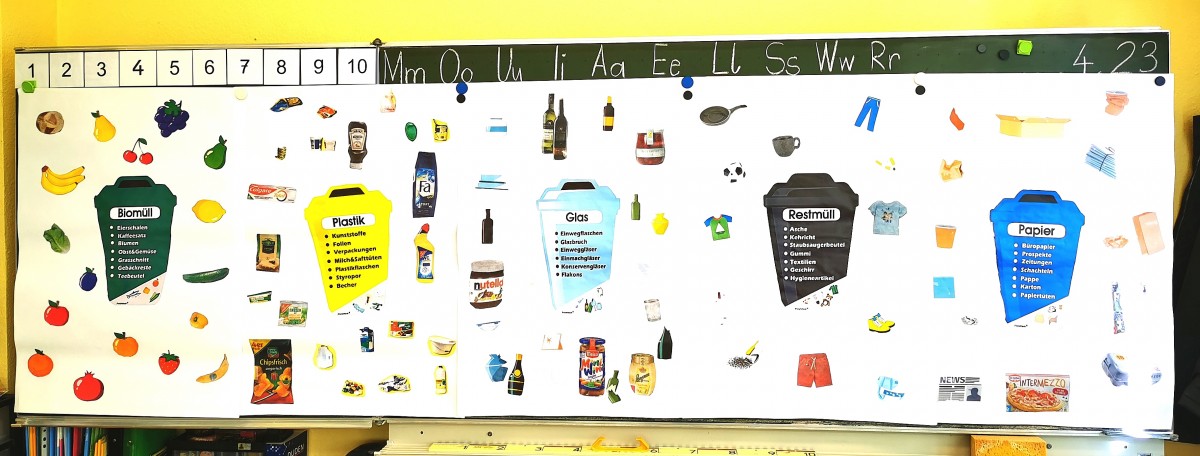 1 2 3 4 5 6 7 8 9 10
Mm Oo Uu Ii Aa Ee Ll Ss Ww Rr
4.23
Biomüll
Eierschalen
Kaffeesatz
Blumen
Obst&Gemüse
Grasschnitt
Gebäckreste
Teebeutel
Colgate
4er
Chipsfrisch
Plastik
Kunststoffe
Folien
Verpackungen
Milch&Safttüten
Plastikflaschen
Styropor
Becher
Fa
nutella
Glas
Einwegflaschen
Glasbruch
Einweggläser
Einmachgläser
Konservengläser
Flakons
Restmüll
Asche
Kehricht
Staubsaugerbeutel
Gummi
Textilien
Geschirr
Hygieneartikel
Papier
Büropapier
Prospekte
Zeitungen
Schachteln
Pappe
Karton
Papiertüten
NEWS
INTERMEZZO
DUDEN